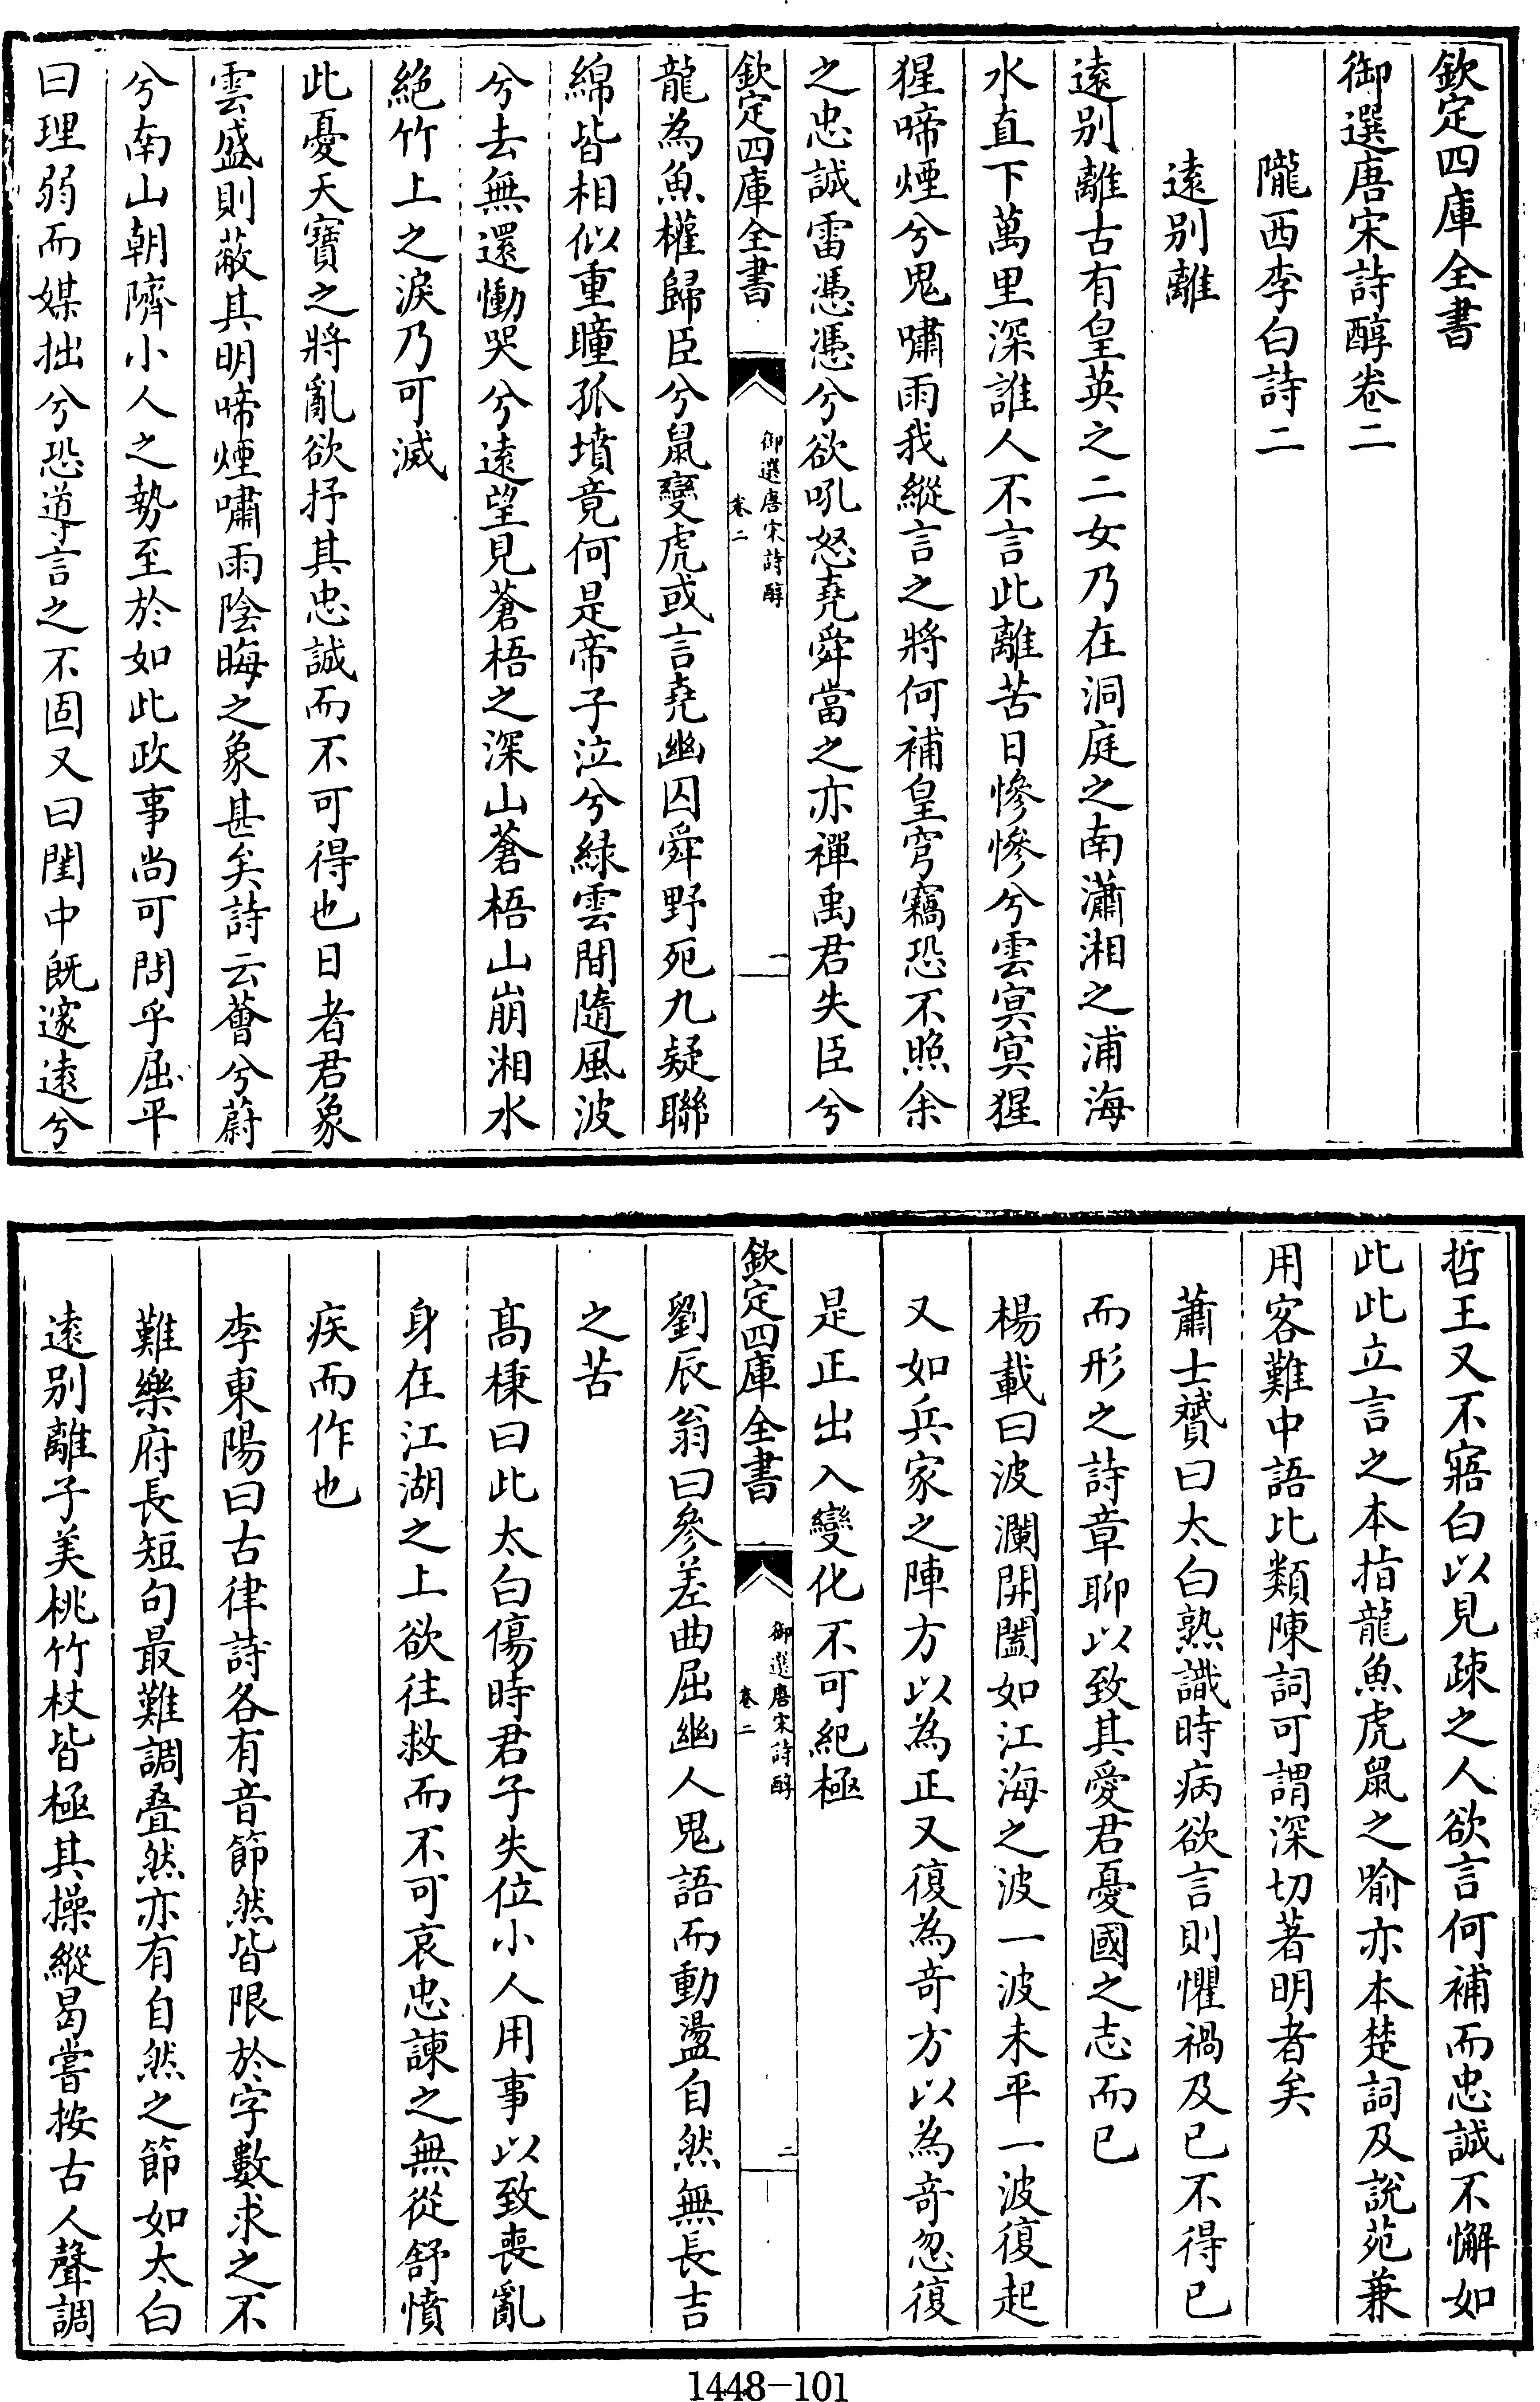 欽定四庫全書
御選唐宋詩醇卷二
隴西李白詩二
遠別離
遠別離古有皇英之二女乃在洞庭之南瀟湘之浦海
水直下萬里深誰人不言此離苦日慘慘兮雲冥冥猩
猩啼煙兮鬼嘯雨我縱言之將何補皇穹竊恐不照余
之忠誠雷憑憑兮欲吼怒堯舜當之亦禪禹君失臣兮
欽定四庫全書
御選唐宋詩醇
卷二
一
龍為魚權歸臣兮鼠變虎或言堯幽囚舜野死九疑聯
綿皆相似重瞳孤墳竟何是帝子泣兮緑雲間隨風波
兮去無還慟哭兮逺望見蒼梧之深山蒼梧山崩湘水
絶竹上之淚乃可滅
此憂天寶之將亂欲抒其忠誠而不可得也日者君象
雲盛則蔽其明啼煙嘯雨陰晦之象甚矣詩云薈兮蔚
兮南山朝隮小人之勢至於如此政事尚可問乎屈平
曰理弱而媒拙兮恐導言之不固又曰閨中既邃逺兮
哲王又不寤白以見疎之人欲言何補而忠誠不懈如
此此立言之本指龍魚虎鼠之喻亦本楚詞及説苑兼
用客難中語比類陳詞可謂深切著明者矣
蕭士贇曰太白熟識時病欲言則懼禍及已不得已
而形之詩章聊以致其愛君憂國之志而已
楊載曰波瀾開闔如江海之波一波未平一波復起
又如兵家之陣方以為正又復為竒方以為竒忽復
是正出入變化不可紀極
欽定四庫全書
御選唐宋詩醇
卷二
二
劉辰翁曰參差曲屈幽人鬼語而動盪自然無長吉
之苦
髙棅曰此太白傷時君子失位小人用事以致喪亂
身在江湖之上欲往救而不可哀忠諫之無從舒憤
疾而作也
李東陽曰古律詩各有音節然皆限於字數求之不
難樂府長短句最難調疊然亦有自然之節如太白
逺別離子美桃竹杖皆極其操縱曷嘗按古人聲調
1448-101